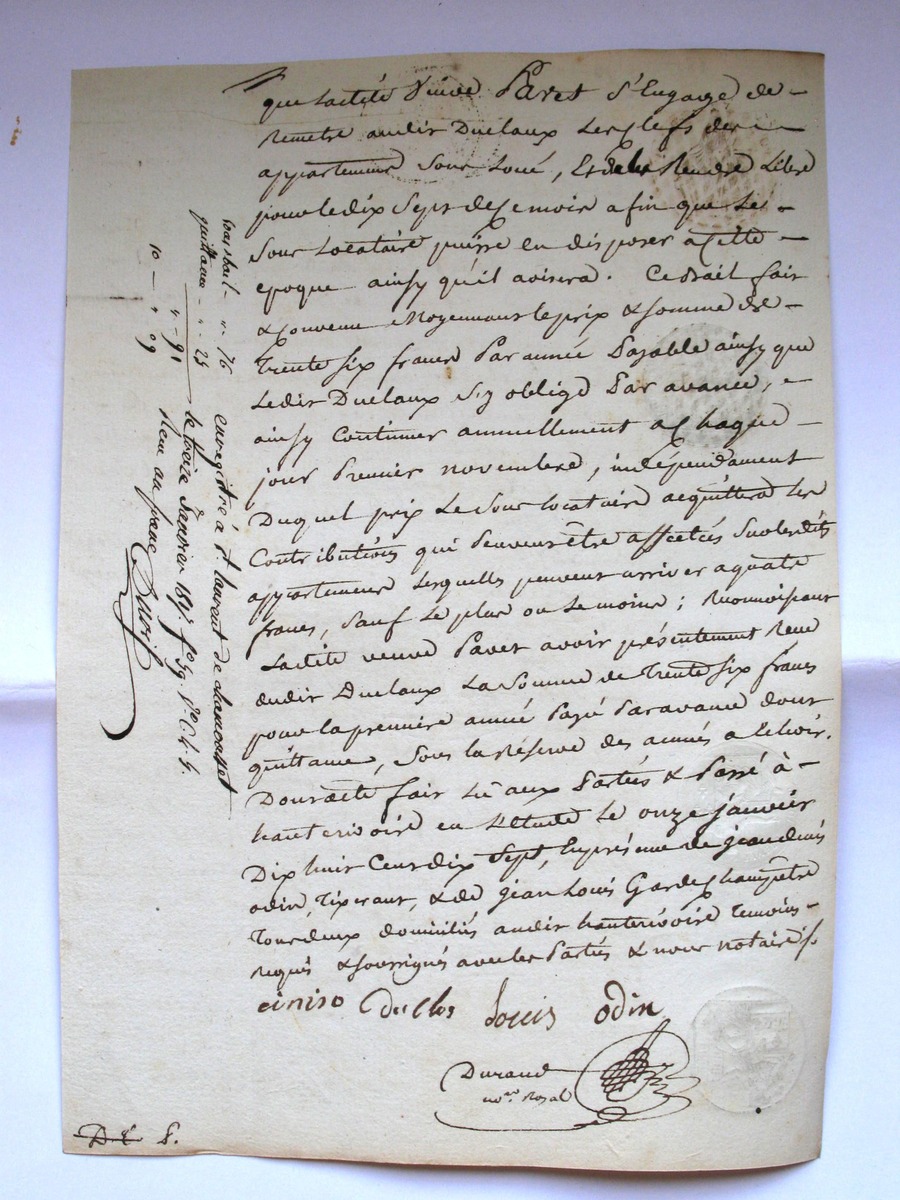 que Laditte Veuve Pavet S'Engage de
Remetre audit Duclaux Les Clefs des
appartemens Sous Loué, Et de les Rendre Libre
pour le dix Sept de Ce mois afin que Le
Sous Locataire puisse en disposer a Cette
epoque ainsy qu'il avisera. Ce Bail fait
& Convenu Moyennant le prix & somme de
Trente six francs Par année Payable ainsy que
Ledit Duclaux s'y oblige Par avance,
ainsy Continuer annuellement a Chaque
jour Premier novembre, indépendament
Duquel prix Le Sous locataire acquittera Les
Contributions qui Peuvent être affectés Sur lesdits
appartemens Lesquelles peuvent arriver a quatre
francs, Sauf Le plus ou Le moins; Reconnoissant
Laditte veuve Pavet avoir présentement Reçu
dudit Duclaux La Somme de Trente Six francs
pour la première année Payé Par avance dont
quittance, Sous la Réserve des années a Echoir.
Dont acte fait Lû aux Parties & Passé à
hauterivoire en L'Etude Le onze janvier
Dix huit Cent dix Sept, En présence de jean denis
odin, Tixerant, & de jean Louis Garde Champêtre
Tous deux domiciliés audit hauterivoire Temoins
Requis & soussignés avec les Parties & nous notaire
duclos Louis odin
Durand
no.re Royal
D. E. S.
Enregistré à St Laurent de chamousset
le treize Janvier 1817 f° 39 R° C. 4. 5.
Recu un franc
Sous bail - " - 76
quittance - " - 23
" - 91
10 - " 09